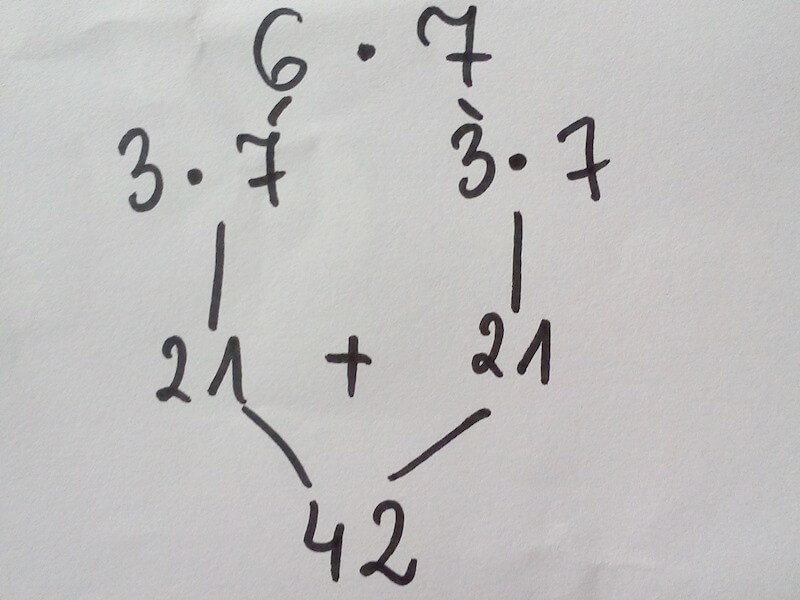 6 · 7
3 · 7 3 · 7
21 + 21
42